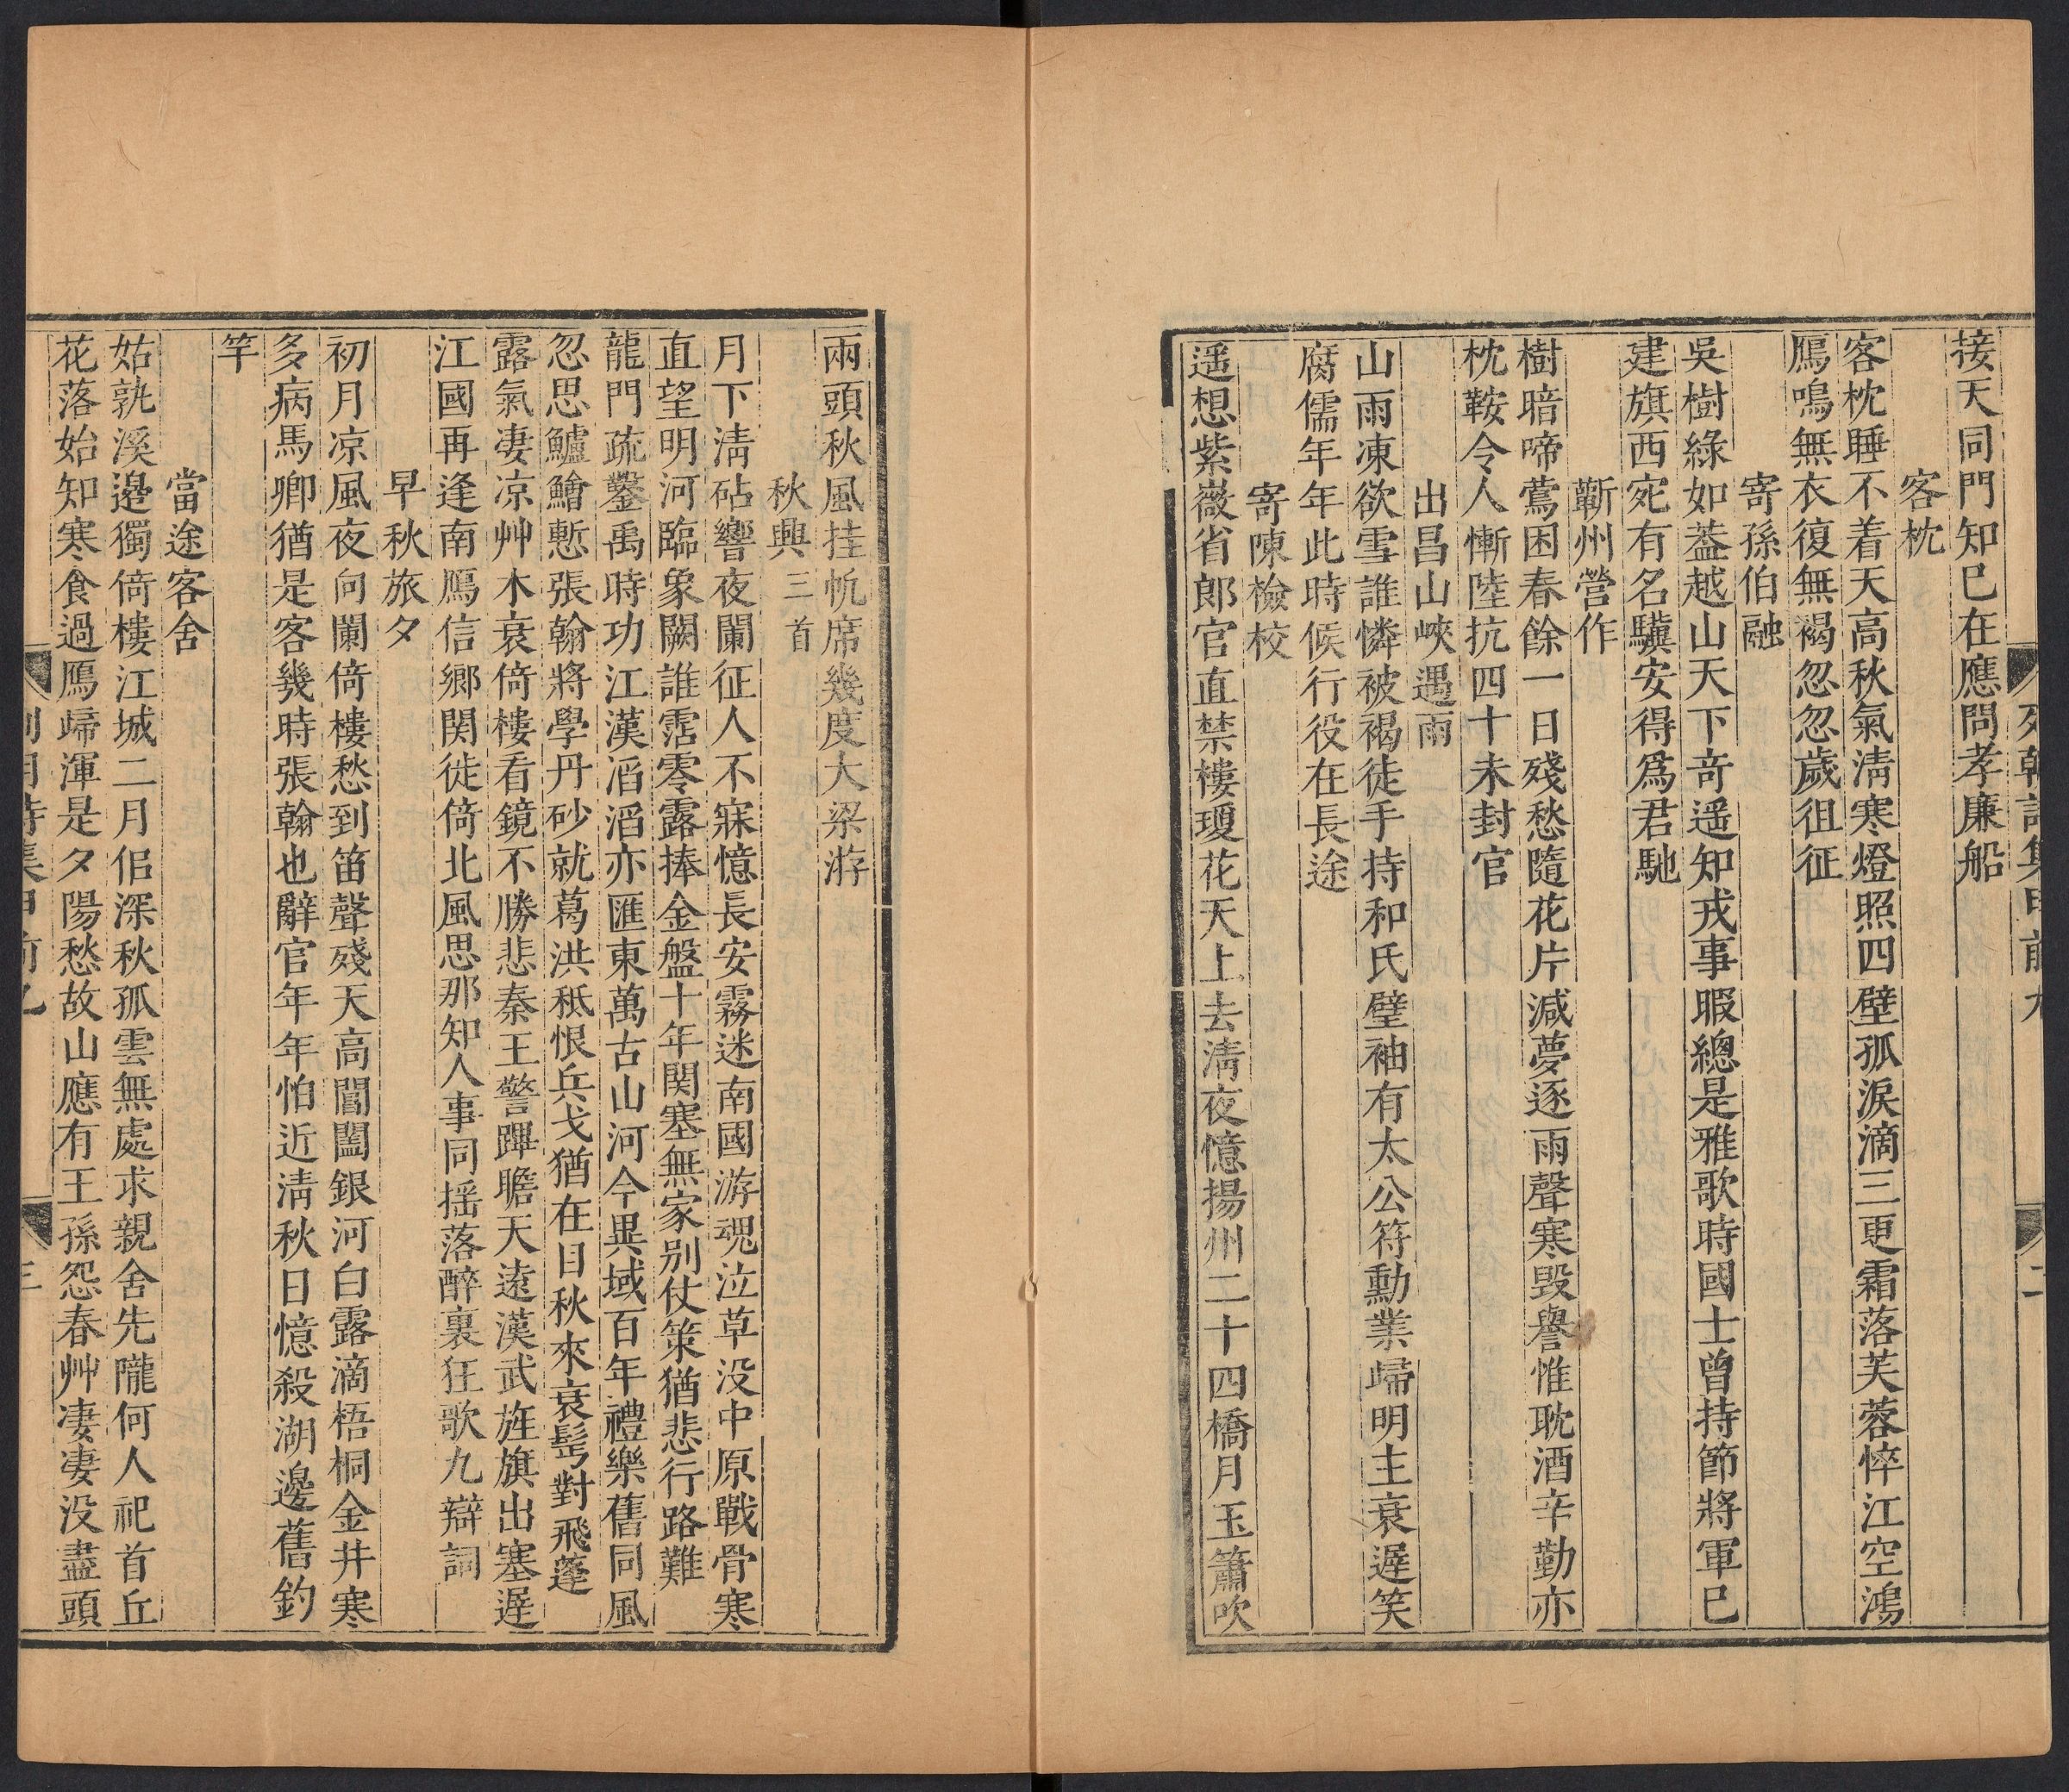 接天同門知已在應問孝廉船
客枕
客枕睡不着天高秋氣淸寒燈照四壁孤淚滴三更霜落芙蓉悴江空鴻
鴈鳴無衣復無褐忽忽歲徂征
寄孫伯融
吳樹綠如葢越山天下竒遥知戎事暇總是雅歌時國士曾持節將軍已
建旗西宛有名驥安得爲君馳
蘄州營作
樹暗啼鶯困春餘一日殘愁隨花片減夢逐雨聲寒毀譽惟耽酒辛勤亦
枕鞍令人慚陸抗四十未封官
出昌山峽遇雨
山雨凍欲雪誰憐被褐徒手持和氏璧袖有太公符勳業歸明主衰遲笑
腐儒年年此時候行役在長途
寄陳檢校
遥想紫薇省郎官直禁樓瓊花天上去淸夜憶揚州二十四橋月玉簫吹
兩頭秋風挂帆席幾度大梁游
秋興三首
月下淸砧響夜闌征人不寐憶長安霧迷南國游魂泣草没中原戰骨寒
直望明河臨象闕誰霑零露捧金盤十年関塞無家别仗策猶悲行路難
龍門疏鑿禹時功江漢滔滔亦匯東萬古山河今異域百年禮樂舊同風
忽思鱸鱠慙張翰將學丹砂就葛洪秖恨兵戈猶在目秋來衰髩對飛蓬
露氣凄凉艸木衰倚樓看鏡不勝悲秦王警蹕瞻天遠漢武旌旗出塞遲
江國再逢南鴈信鄉関徙倚北風思那知人事同揺落醉裏狂歌九辯詞
早秋旅夕
初月凉風夜向闌倚樓愁到笛聲殘天高閶闔銀河白露滴梧桐金井寒
多病馬卿猶是客幾時張翰也辭官年年怕近淸秋日憶殺湖邊舊釣
竿
當途客舍
姑孰溪邊獨倚樓江城二月佀深秋孤雲無處求親舍先隴何人祀首丘
花落始知寒食過鴈歸渾是夕陽愁故山應有王孫怨春艸凄凄没盡頭